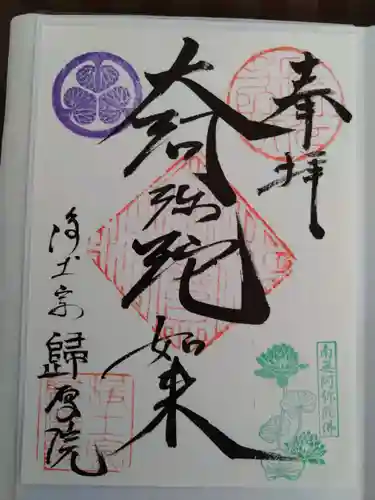 奉拝
阿弥陀如来
浄土宗
歸厚院
南無阿弥陀佛